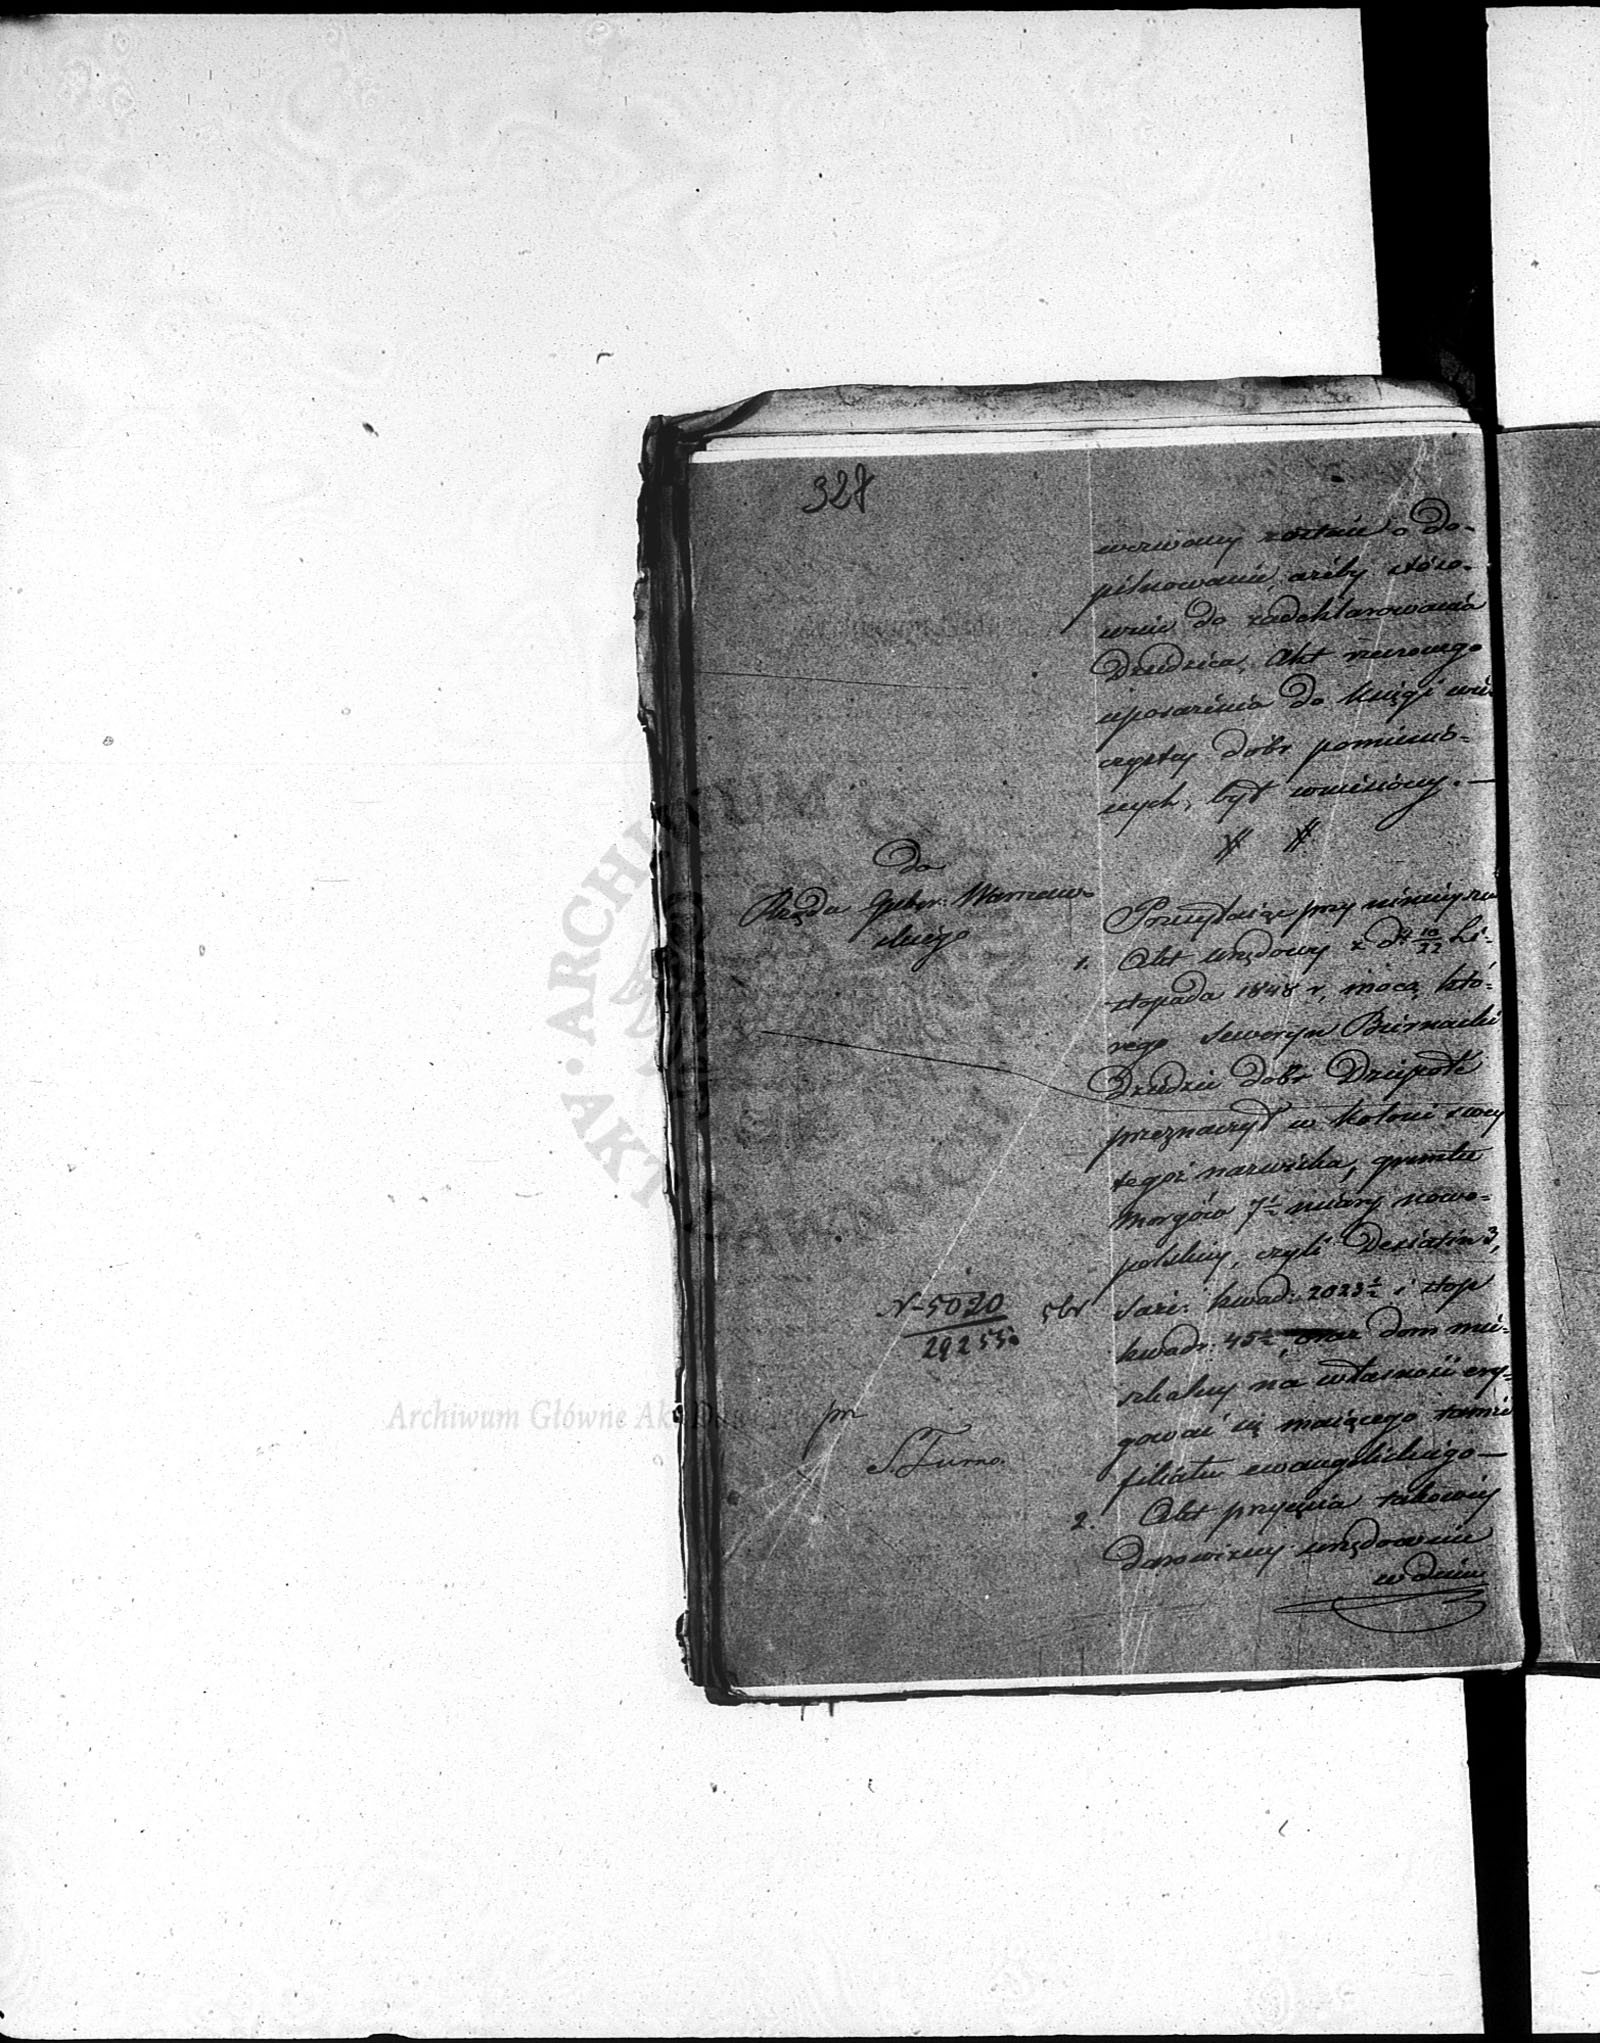 328
wezwany zostanie o do-
pilnowanie, ażeby stóso-
wnie do zadeklarowania
Dziedzica, Akt rzeczonego
uposażenia do księgi wie-
czystej dóbr pomienio-
nych, był wniesiony. —
do
Rządu Guber: Warszaw-
skiego
Przesyłając przy niniejszem
1. Akt urzędowy z d. 10/22 Li-
stopada 1848 r, mocą któ-
rego Seweryn Biernacki
Dziedzic dóbr Dziepółć
przeznaczył w kolonii swej
tegoż nazwiska, gruntu
morgów 7½ miary nowo-
polskiej, czyli Desiatin 3,
saże: kwad: 2023½ i stop
kwadr: 45½ oraz dom mie-
szkalny na własność ery-
gować się mającego tamże
filiału ewangelickiego —
2. Akt przyjęcia takowej
darowizny urzędownie
w dniu
N-5020
29255
5br
pr
S. Turno.
ARCHIWUM
AKT DAWNYCH
Archiwum Główne Akt Dawnych